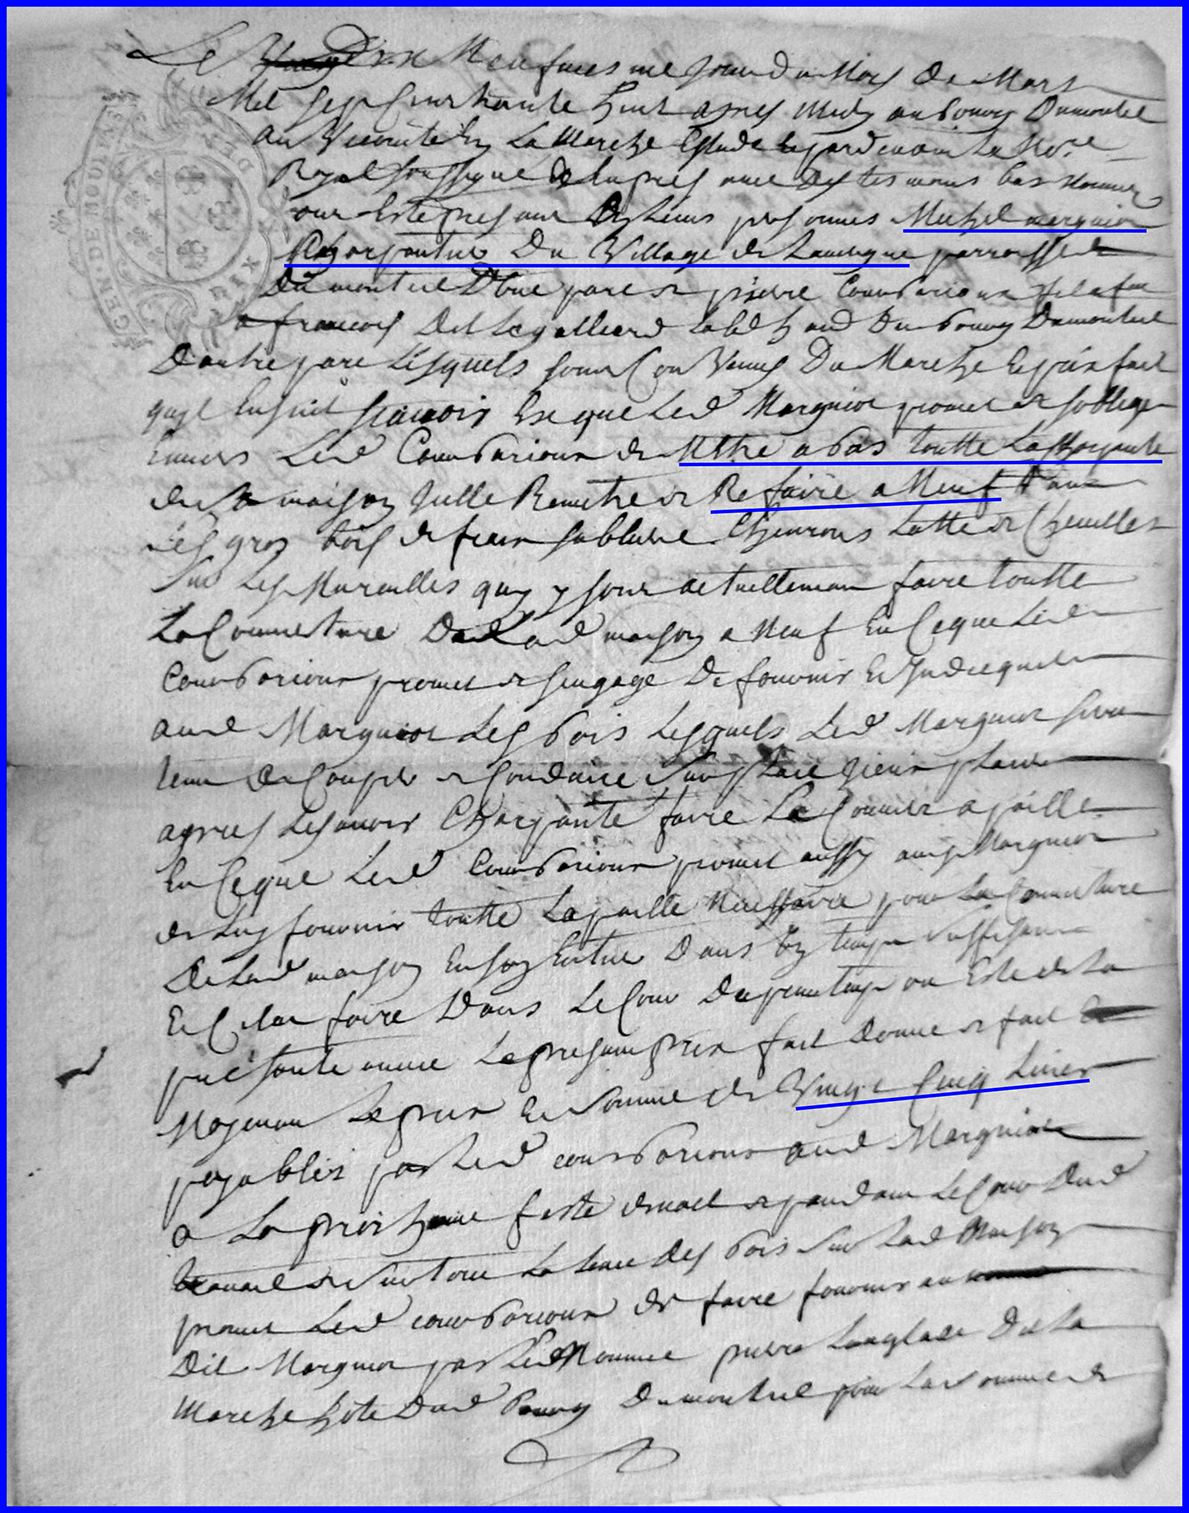 GEN. DE MOULINS
DEUX
Le dix Neufuiesme Jour du Mois De Mars
Mil sept cent trante huit apres Midy au bourg Dumontel
au Vicomte En La Marche Estude et pardeuant Le No.re
Royal soussigne et En pres ance des tesmoins bas nommez
ont Este presant En Leurs personnes Michel marguiot
Charpantier Du Village de parroisse de
Du monteil D'une part et pierre Courbarioux
a francois dit Legalliard Du bourg Dumonteil
D'autre part Lesquels sont Con Venus Du Marche Et prix fait
quy Ensuit scauoir Est que Led Marguiot promet et soblige
Enuers Led Courbarioux de Mttre a bas toutte La Charpante
de sa maison Jcelle Remettre et Refaire a Neuf
Les gros bois et sabliere Cheurons Latte et Cheuilles
sur Les Murailles quy y sont actuellement faire toutte
La Couuerture De Lad maison a Neuf En Ceque Led
Courbarioux promet et sengage De fournir Et Jndicquer
aud Marguiot Les bois Lesquels Led Marguiot sera
tenu De Couper et Conduire sur place
apres Les auoir Charpanté faire La Couuer a paille
En Ceque Led Courbarioux promet aussy aud Marguiot
de Luy fournir toutte La paille Necessaire pour La Couuerture
De Lad maison En son Entier Dans Un temps suffisant
Et Celuy faire Dans Le Cour Du printemps ou Esté de La
presante annee Le presant prix fait Donne et fait
Moyenant Le prix Et somme de Vingt Cinq Liures
payables par Led courbarioux aud Marguiot
a La prochaine feste et pandant Le Cour Dud
trauail et sur tout La leuee Des bois sur Lad Maison
promet Led courbarioux de faire fournir au
Dit Marguiot par Led Nommé pierre Langlade De La
Marche hôte Dud Bourg Dumonteil pour La somme de